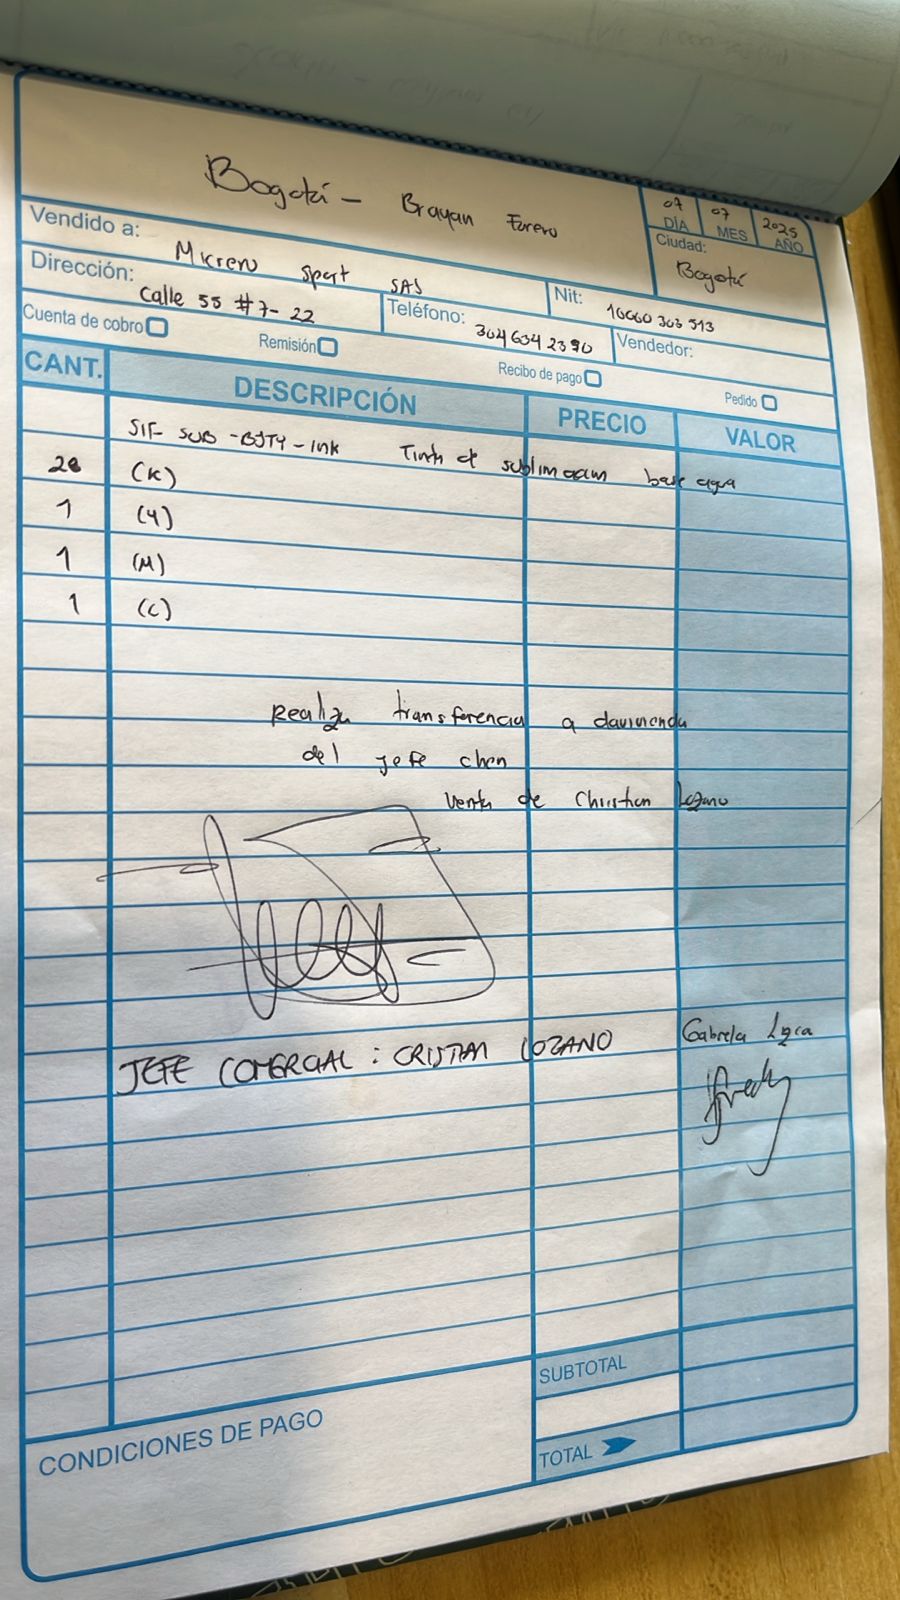 Bogotá - Brayan Forero
07 07 2025
DÍA MES AÑO
Ciudad:
Bogotá
Vendido a: Micreru Sport SAS
Nit: 10060 303 513
Dirección: calle 55 # 7-22
Teléfono: 304 634 2390
Vendedor:
Cuenta de cobro
Remisión
Recibo de pago
Pedido
CANT. DESCRIPCIÓN PRECIO VALOR
SIF- SUB - - INK Tinta de sublimacion base agua
20 (K)
1 (Y)
1 (M)
1 (C)
Realiza transferencia a davivienda
del jefe chen
venta de Christian Lozano
Gabriela
JEFE COMERCIAL : CRISTIAN LOZANO
SUBTOTAL
CONDICIONES DE PAGO
TOTAL